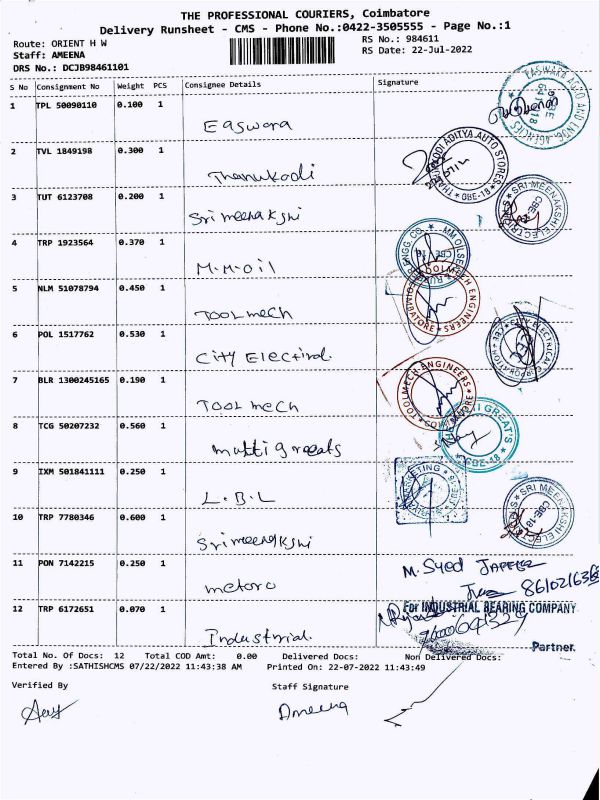 THE PROFESSIONAL COURIERS, Coimbatore
Delivery Runsheet - CMS - Phone No.:0422-3505555 - Page No.:1
Route: ORIENT H W RS No.: 984611
Staff: AMEENA RS Date: 22-Jul-2022
DRS No.: DCJB98461101
S No Consignment No Weight PCS Consignee Details Signature
1 TPL 50090110 0.100 1 Easwara
EASWARI AGRO AND ENGG. AGENCIES
2 TVL 1849198 0.300 1 Thanukodi
ADITYA AUTO STORES CBE-18
3 TUT 6123708 0.200 1 Sri meenakshi
SRI MEENAKSHI ELECTRICALS CBE-18
4 TRP 1923564 0.370 1 M.M.oil
ENGG. CO. MM OILSEE CBE 18
5 NLM 51078794 0.450 1 TOOL mech
TOOLMECH ENGINEERS COIMBATORE
6 POL 1517762 0.530 1 City Electrical.
CITY ELECTRICAL CORPORATION CBE
7 BLR 1300245165 0.190 1 TOOL mech
TOOLMECH ENGINEERS COIMBATORE
8 TCG 50207232 0.560 1 multi greats
GREAT'S CBE-18
9 IXM 501841111 0.250 1 L.B.L
MARKETING
10 TRP 7780346 0.600 1 Sri meenakshi
SRI MEENAKSHI ELECTRICALS CBE-18
11 PON 7142215 0.250 1 metoro
M. Syed JAFEER
12 TRP 6172651 0.070 1 Industrial.
For INDUSTRIAL BEARING COMPANY
Partner.
Total No. Of Docs: 12 Total COD Amt: 0.00 Delivered Docs: Non Delivered Docs:
Entered By :SATHISHCMS 07/22/2022 11:43:38 AM Printed On: 22-07-2022 11:43:49
Verified By Staff Signature
Ameena